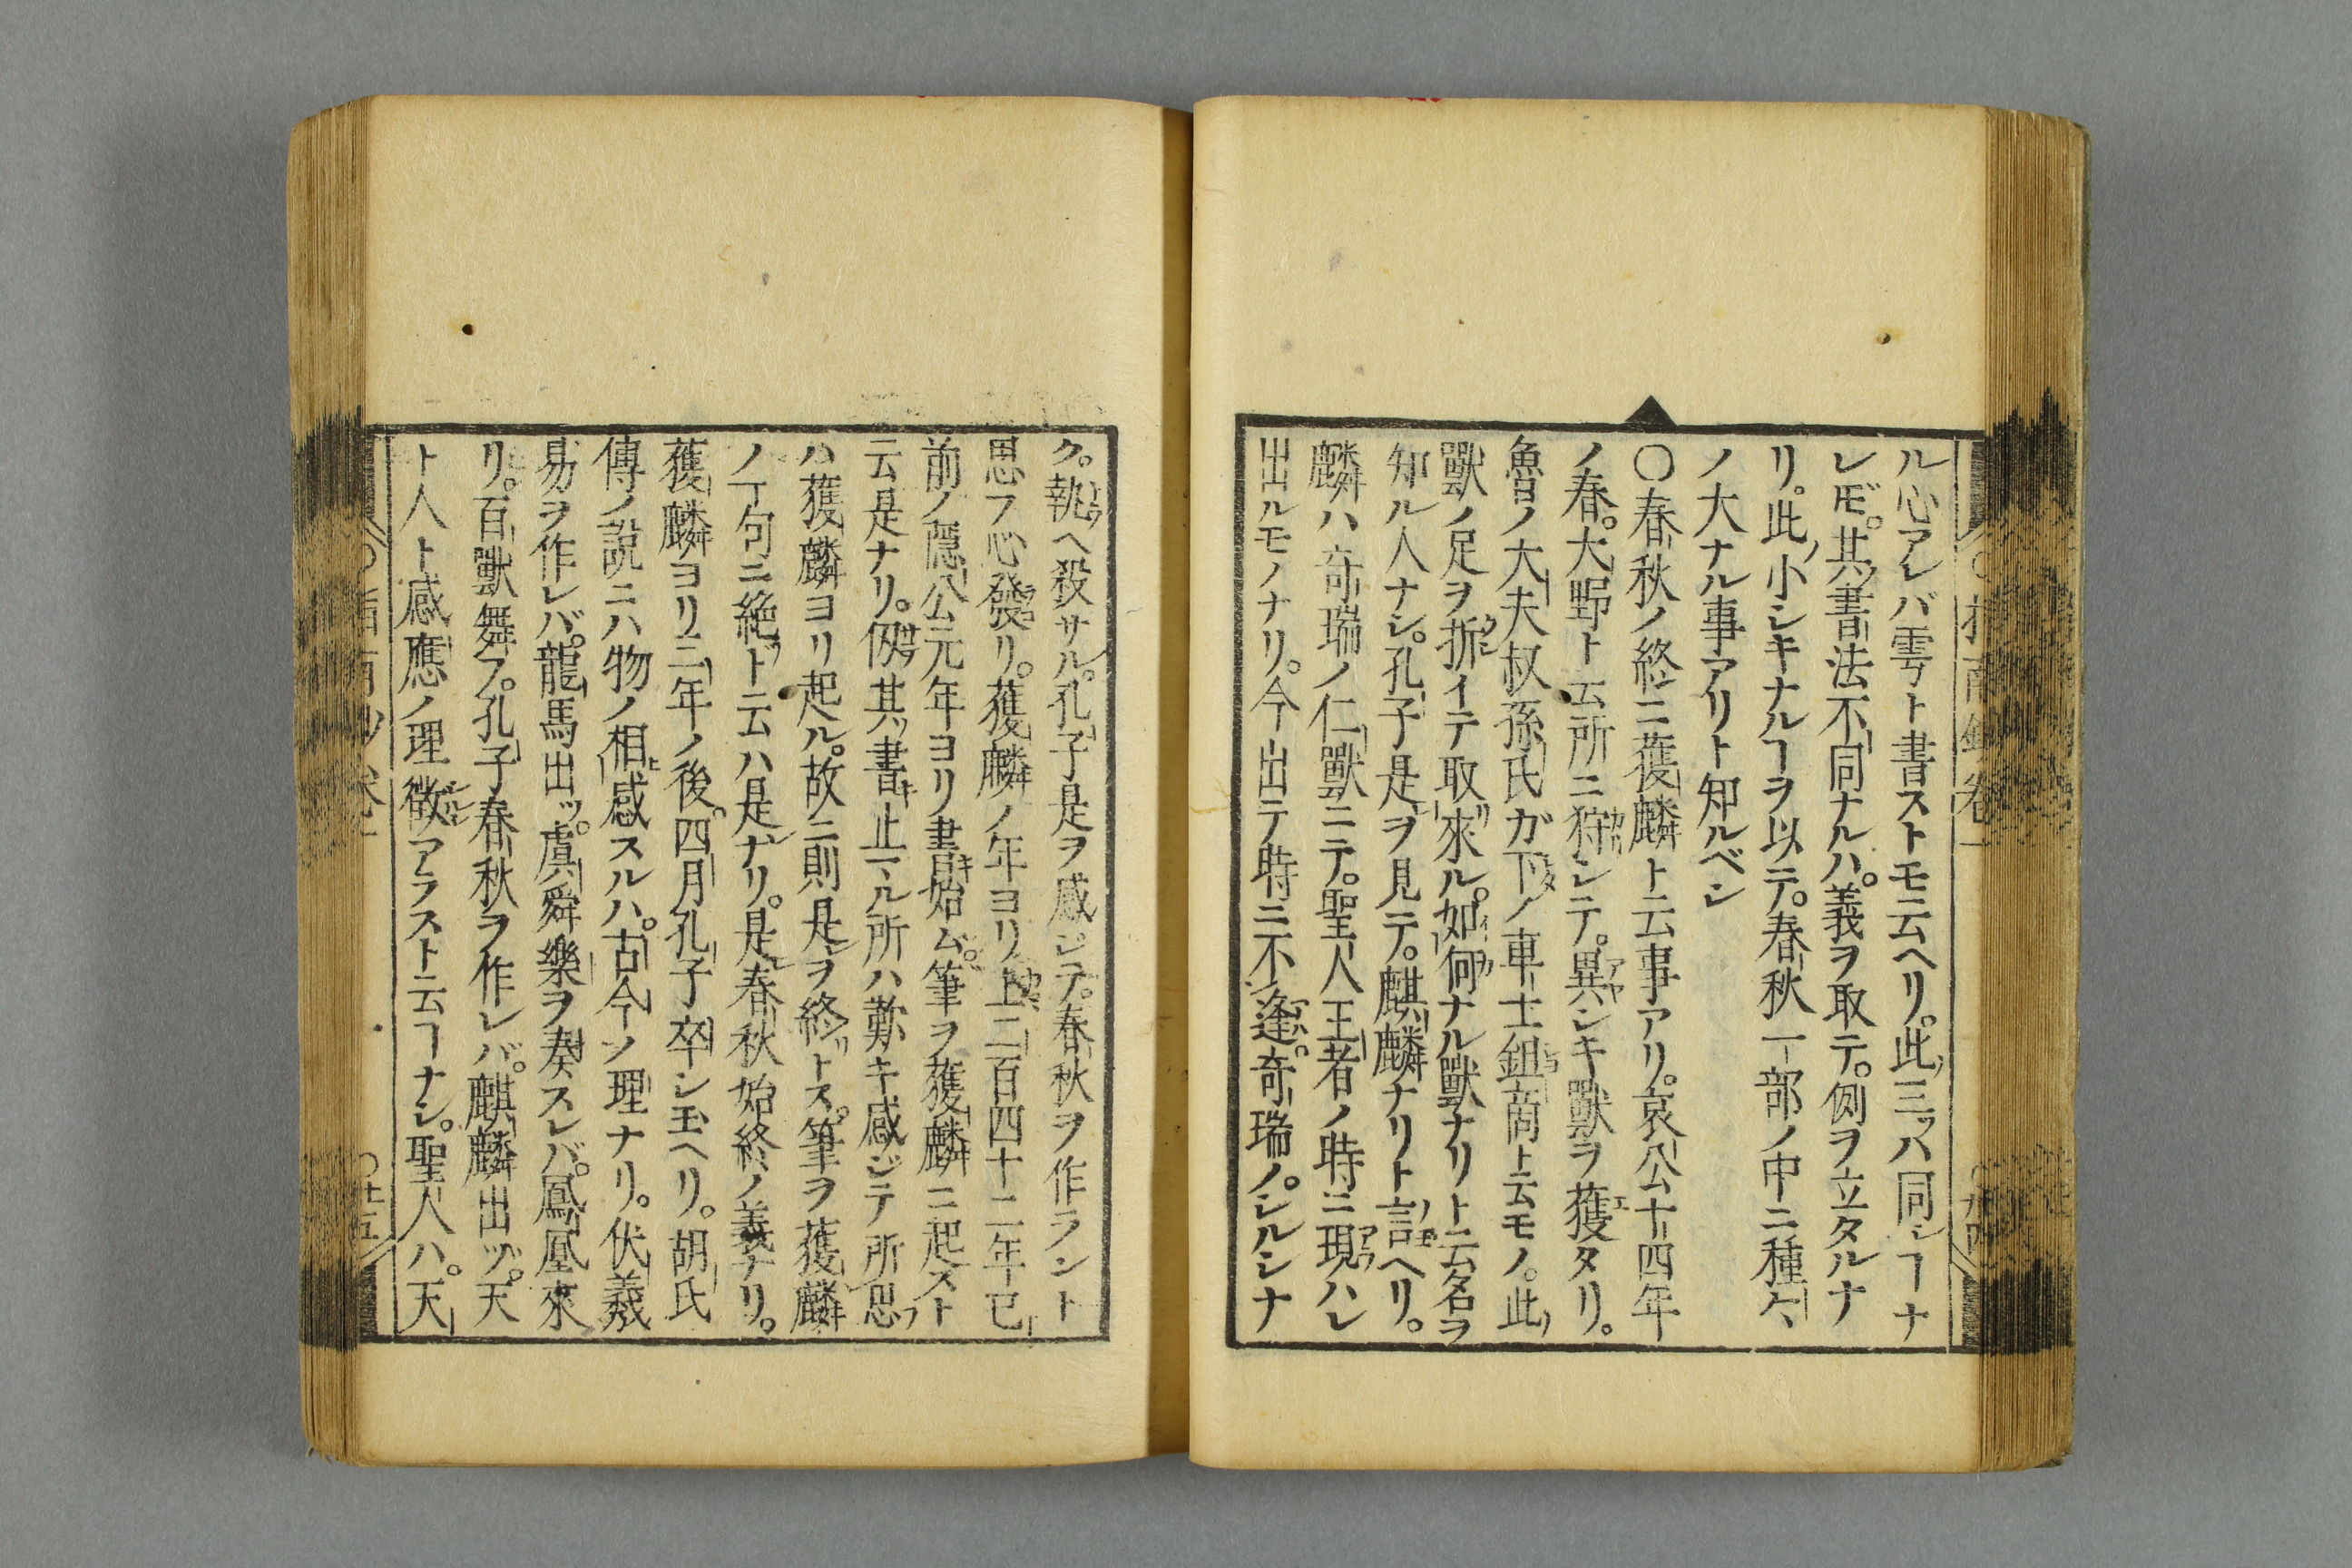 ル心アレバ雩ト書ストモ云ヘリ。此三ッハ同シヿナ
レ𪜈。其書法不同ナルハ。義ヲ取テ。例ヲ立タルナ
リ。此ノ小シキナルヿヲ以テ。春秋一部ノ中ニ種々
ノ大ナル事アリト知ルベシ
〇春秋ノ終ニ獲麟ト云事アリ。哀公十四年
ノ春。大野ト云所ニ狩シテ。異シキ獸ヲ獲タリ。
魯ノ大夫叔孫氏ガ下ノ車士鉏商ト云モノ。此ノ
獸ノ足ヲ折イテ取來ル。如何ナル獸ナリト云名ヲ
知ル人ナシ。孔子是ヲ見テ。麒麟ナリト言ヘリ。
麟ハ奇瑞ノ仁獸ニテ。聖人王者ノ時ニ現ハレ
出ルモノナリ。今出テ時ニ不逢。奇瑞ノ。シルシナ
ク。執ヘ殺サル。孔子是ヲ感ジテ。春秋ヲ作ラント
思フ心發リ。獲麟ノ年ヨリ上二百四十二年已
前ノ隱公元年ヨリ書始ム。筆ヲ獲麟ニ起スト
云是ナリ。偖其書止マル所ハ歎キ感ジテ所思フ
ハ獲麟ヨリ起ル。故ニ則是ヲ終トス。筆ヲ獲麟
ノ一句ニ絶ト云ハ是ナリ。是春秋始終ノ義ナリ。
獲麟ヨリ二年ノ後。四月孔子卒シ玉ヘリ。胡氏
傳ノ説ニハ物ノ相感スルハ。古今ソ理ナリ。伏羲
易ヲ作レバ。龍馬出ッ。虞舜樂ヲ奏スレバ。鳳凰來
リ。百獸舞フ。孔子春秋ヲ作レバ。麒麟出ヅ。天
ト人ト感應ノ理徵アラスト云ヿナシ。聖人ハ。天